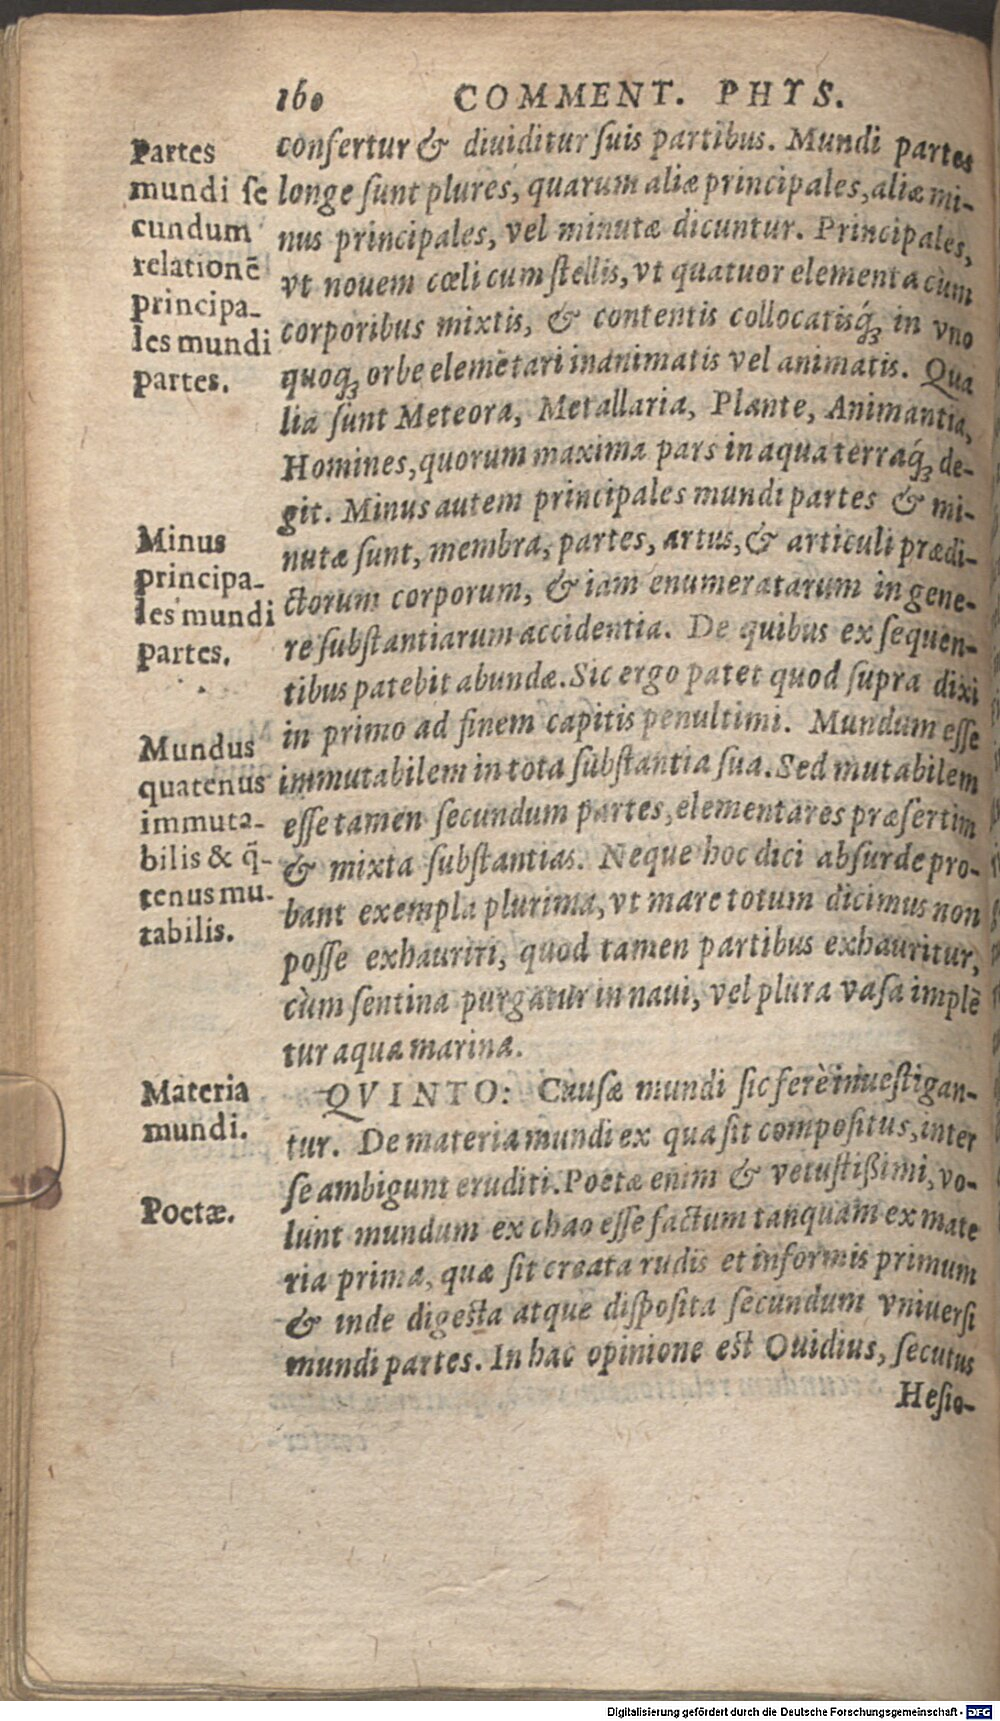 160 COMMENT. PHYS.
Partes
mundi ſe
cundum
relationē
principa-
les mundi
partes.
Minus
principa-
les mundi
partes.
Mundus
quatenus
immuta-
bilis & q̃-
tenus mu-
tabilis.
Materia
mundi.
Poetæ.
confertur & diuiditur ſuis partibus. Mundi partes
longe ſunt plures, quarum aliæ principales, aliæ mi-
nus principales, vel minutæ dicuntur. Principales,
vt nouem cœli cum ſtellis, vt quatuor elementa cùm
corporibus mixtis, & contentis collocatisq́ꝫ in vno
quoqꝫ orbe elemētari inanimatis vel animatis. Qua
lia ſunt Meteora, Metallaria, Plante, Animantia,
Homines, quorum maxima pars in aqua terraq́ꝫ de-
git. Minus autem principales mundi partes & mi-
nutæ ſunt, membra, partes, artus, & articuli prædi-
ctorum corporum, & iam enumeratarum in gene-
re ſubſtantiarum accidentia. De quibus ex ſequen-
tibus patebit abundæ. Sic ergo patet quod ſupra dixi
in primo ad finem capitis penultimi. Mundum eſſe
immutabilem in tota ſubſtantia ſua. Sed mutabilem
eſſe tamen ſecundum partes, elementares præſertim
& mixta ſubſtantias. Neque hoc dici abſurde pro-
bant exempla plurima, vt mare totum dicimus non
poſſe exhauriri, quod tamen partibus exhauritur,
cùm ſentina purgatur in naui, vel plura vaſa implē
tur aqua marina.
QVINTO: Cauſæ mundi ſic ferè inueſtigan-
tur. De materia mundi ex qua ſit compoſitus, inter
ſe ambigunt eruditi. Poetæ enim & vetuſtißimi, vo-
lunt mundum ex chao eſſe factum tanquam ex mate
ria prima, quæ ſit creata rudis et informis primum
& inde digeſta atque diſpoſita ſecundum vniuerſi
mundi partes. In hac opinione eſt Ouidius, ſecutus
Heſio-
Digitalisierung gefördert durch die Deutsche Forschungsgemeinschaft - DFG